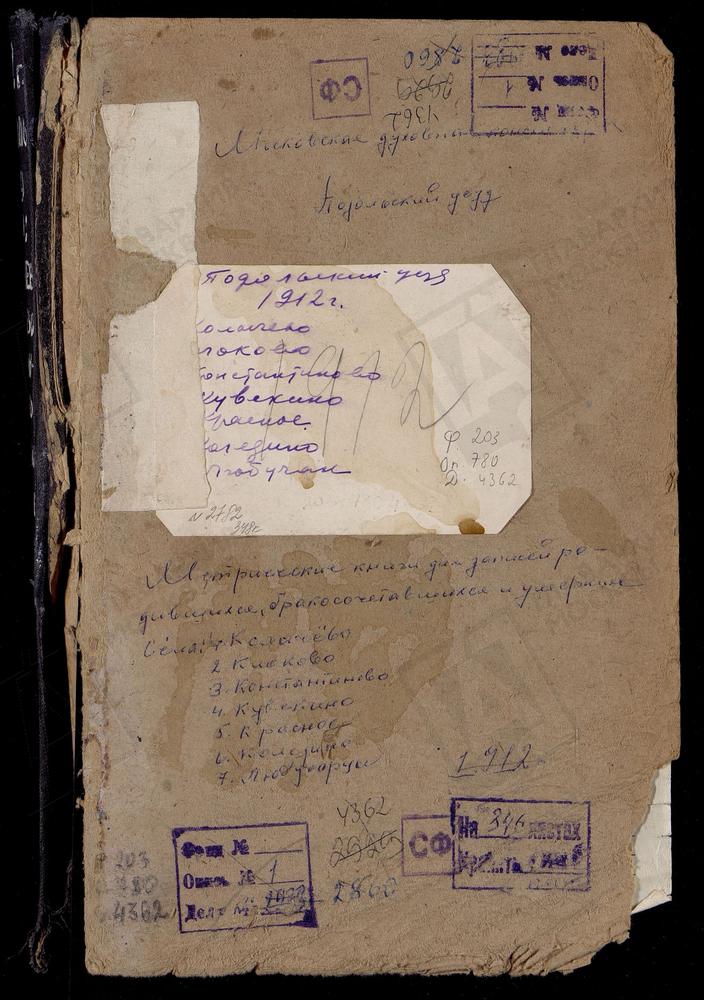 2860
2929
4362
СФ
Дело №
Опись № 1
Фонд №
Московская духовная консистория
Подольский уезд
Подольский уезд
1912 г.
олачево
локово
онстантиново
Кувекино
Красное
оледино
1912
Ф. 203
Оп. 780
Д. 4362
N 2782
Метрические книги для записей ро-
дившихся, бракосочетавшихся и умерших
Сёла: 1. Колачёво
2. Клоково
3. Константиново
4. Кувекино
5. Красное
6. Коледино
7. Любучаны
1912
4362
2929
2860
СФ
На 346 листах
Фонд №
Опись № 1
Дело №
203
780
4362